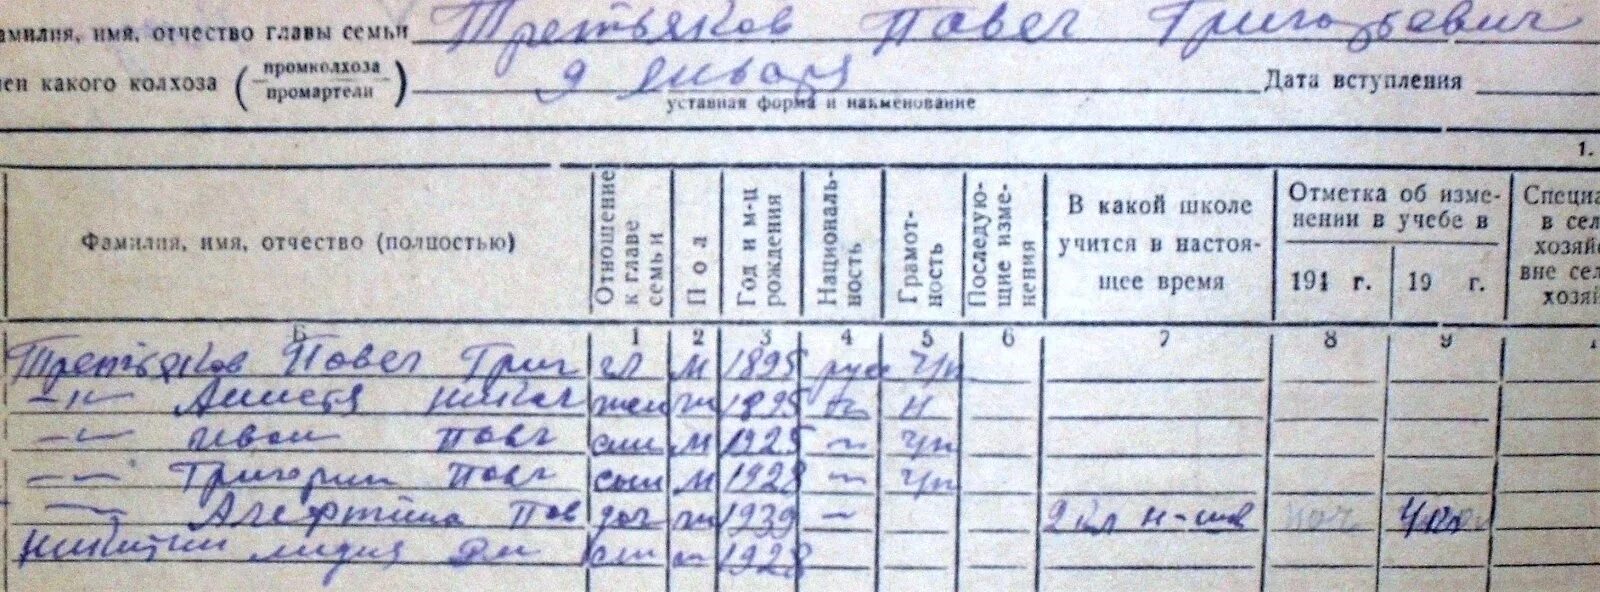 амилия, имя, отчество главы семьи Третьяков Павел Григорьевич
ен какого колхоза (промколхоза промартели) 9 Января Дата вступления
уставная форма и наименование
1.
Фамилия, имя, отчество (полностью) Отношение к главе семьи Пол Год и м-ц рождения Националь-ность Грамот-ность Последую-щие изме-нения В какой школе учится в настоя-щее время Отметка об изме-нении в учебе в 194 г. 19 г. Специа в сел хозяй вне сел хозяй
Б 1 2 3 4 5 6 7 8 9
Третьяков Павел Григ гл м 1895 рус ч/п
-"- жен ж 1895 -"- н
-"- Иван Павл сын м 1925 -"- ч/п
-"- Григорий Павл сын м 1928 -"- ч/п
-"- Алефтина Пав доч ж 1939 -"- 2 кл н-шк
Никитин Лидия 1928